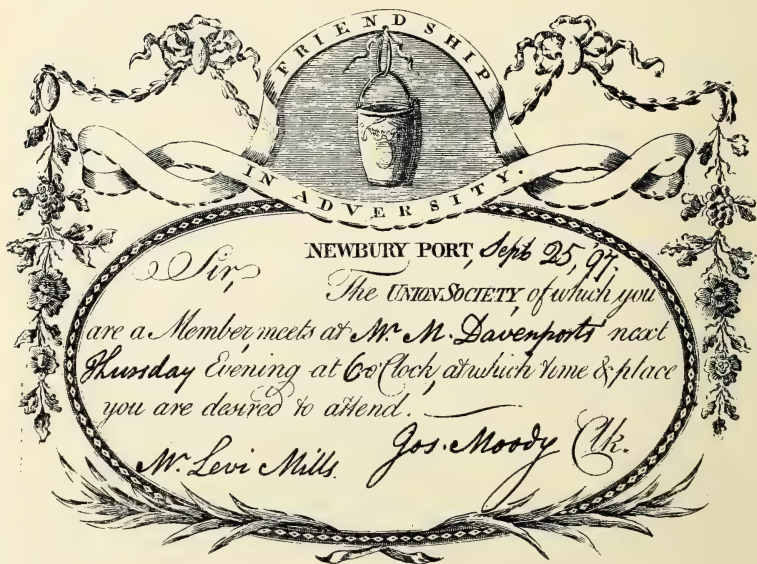 FRIENDSHIP
IN ADVERSITY.
NEWBURY PORT, Sept 25, 97.
Sir,
The UNION SOCIETY, of which you
are a Member, meets at Mr. M. Davenports next
Thursday Evening at 6 o'Clock, at which time & place
you are desired to attend.
Jos. Moody Clk.
Mr. Levi Mills.